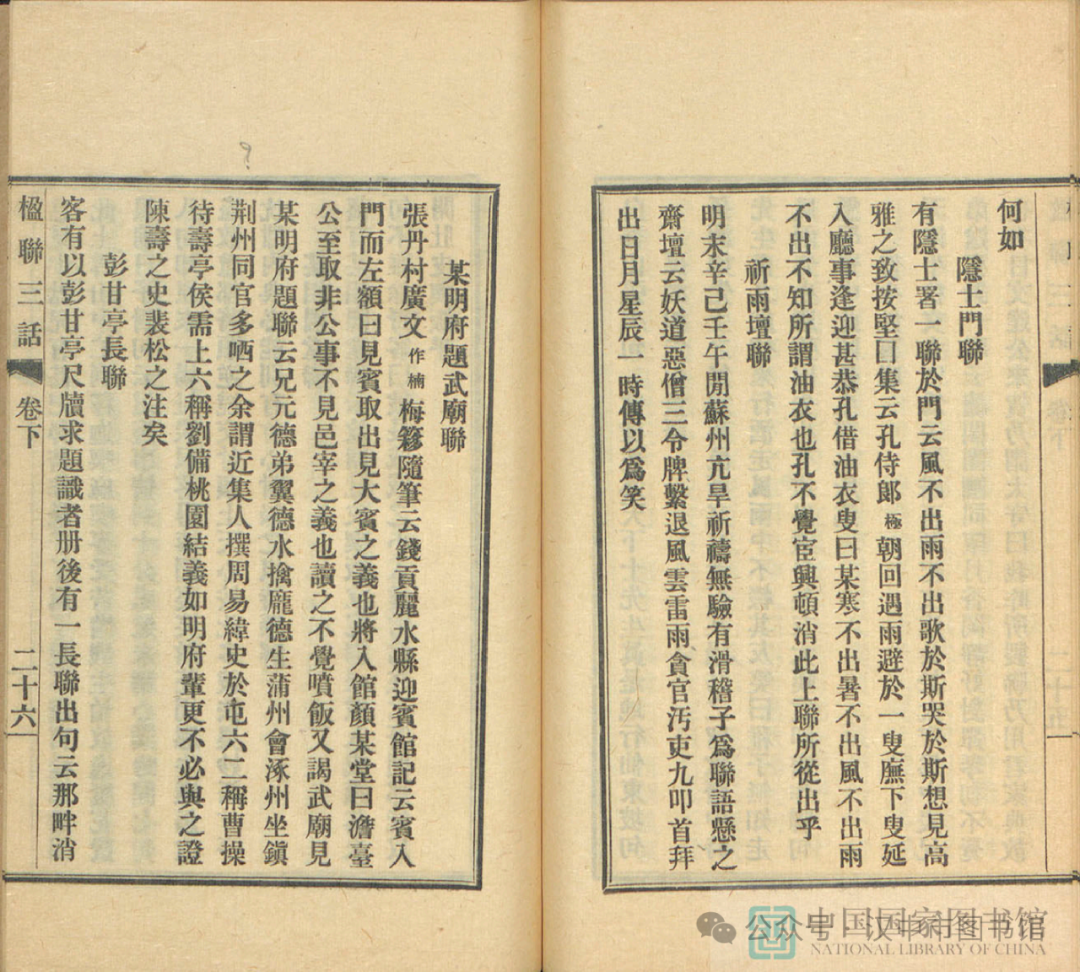 何如
隱士門聯
有隱士署一聯於門云風不出雨不出歌於斯哭於斯想見高
雅之致按堅曰集云孔侍郎極朝回遇雨避於一叟廡下叟延
入廳事逢迎甚恭孔借油衣叟曰某寒不出暑不出風不出雨
不出不知所謂油衣也孔不覺宦興頓消此上聯所從出乎
祈雨壇聯
明末辛巳壬午閒蘇州亢旱祈禱無驗有滑稽子爲聯語懸之
齋壇云妖道惡僧三令牌繫退風雲雷雨貪官汚吏九叩首拜
出日月星辰一時傳以爲笑
某明府題武廟聯
張丹村廣文作楠梅簃隨筆云錢貢麗水縣迎賓館記云賓入
門而左額曰見賓取出見大賓之義也將入館顏某堂曰澹臺
公至取非公事不見邑宰之義也讀之不覺噴飯又謁武廟見
某明府題聯云兄元德弟翼德水擒龐德生蒲州會涿州坐鎭
荆州同官多哂之余謂近集人撰周易緯史於屯六二稱曹操
待壽亭侯需上六稱劉備桃園結義如明府輩更不必與之證
陳壽之史裴松之注矣
彭甘亭長聯
客有以彭甘亭尺牘求題識者册後有一長聯出句云那畔消
楹聯三話 卷下 二十六
公众号·汉中市图书馆
中国国家图书馆
NATIONAL LIBRARY OF CHINA